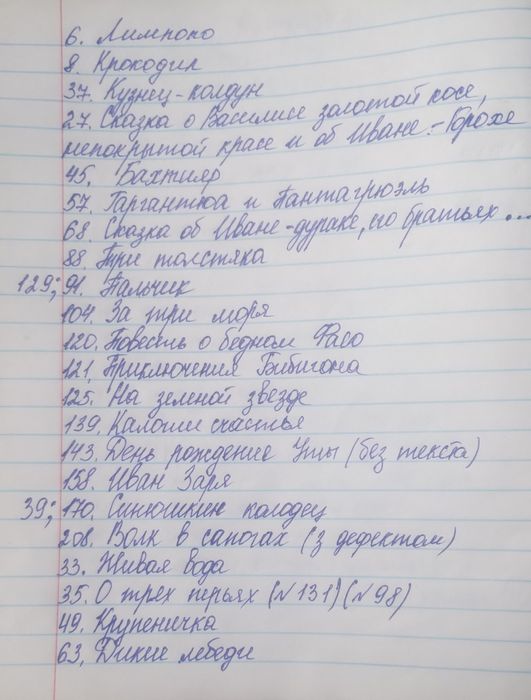 6. Лимпопо
8. Крокодил
37. Кузнец-колдун
27. Сказка о Василисе золотой косе,
непокрытой красе и об Иване-Горохе
45. Бахтияр
57. Гаргантюа и Пантагрюэль
68. Сказка об Иване-дураке, его братьях...
88. Три толстяка
129; 91. Пальчик
104. За три моря
120. Повесть о бедном Фасо
121, Приключения Бибигона
125. На зеленой звезде
139. Калоши счастья
143. День рождение Уты (без текста)
158. Иван Заря
39; 170. Синюшкин колодец
208. Волк в сапогах (з дефектом)
33. Живая вода
35. О трех перьях (№131) (№98)
49. Крупеничка
63, Дикие лебеди